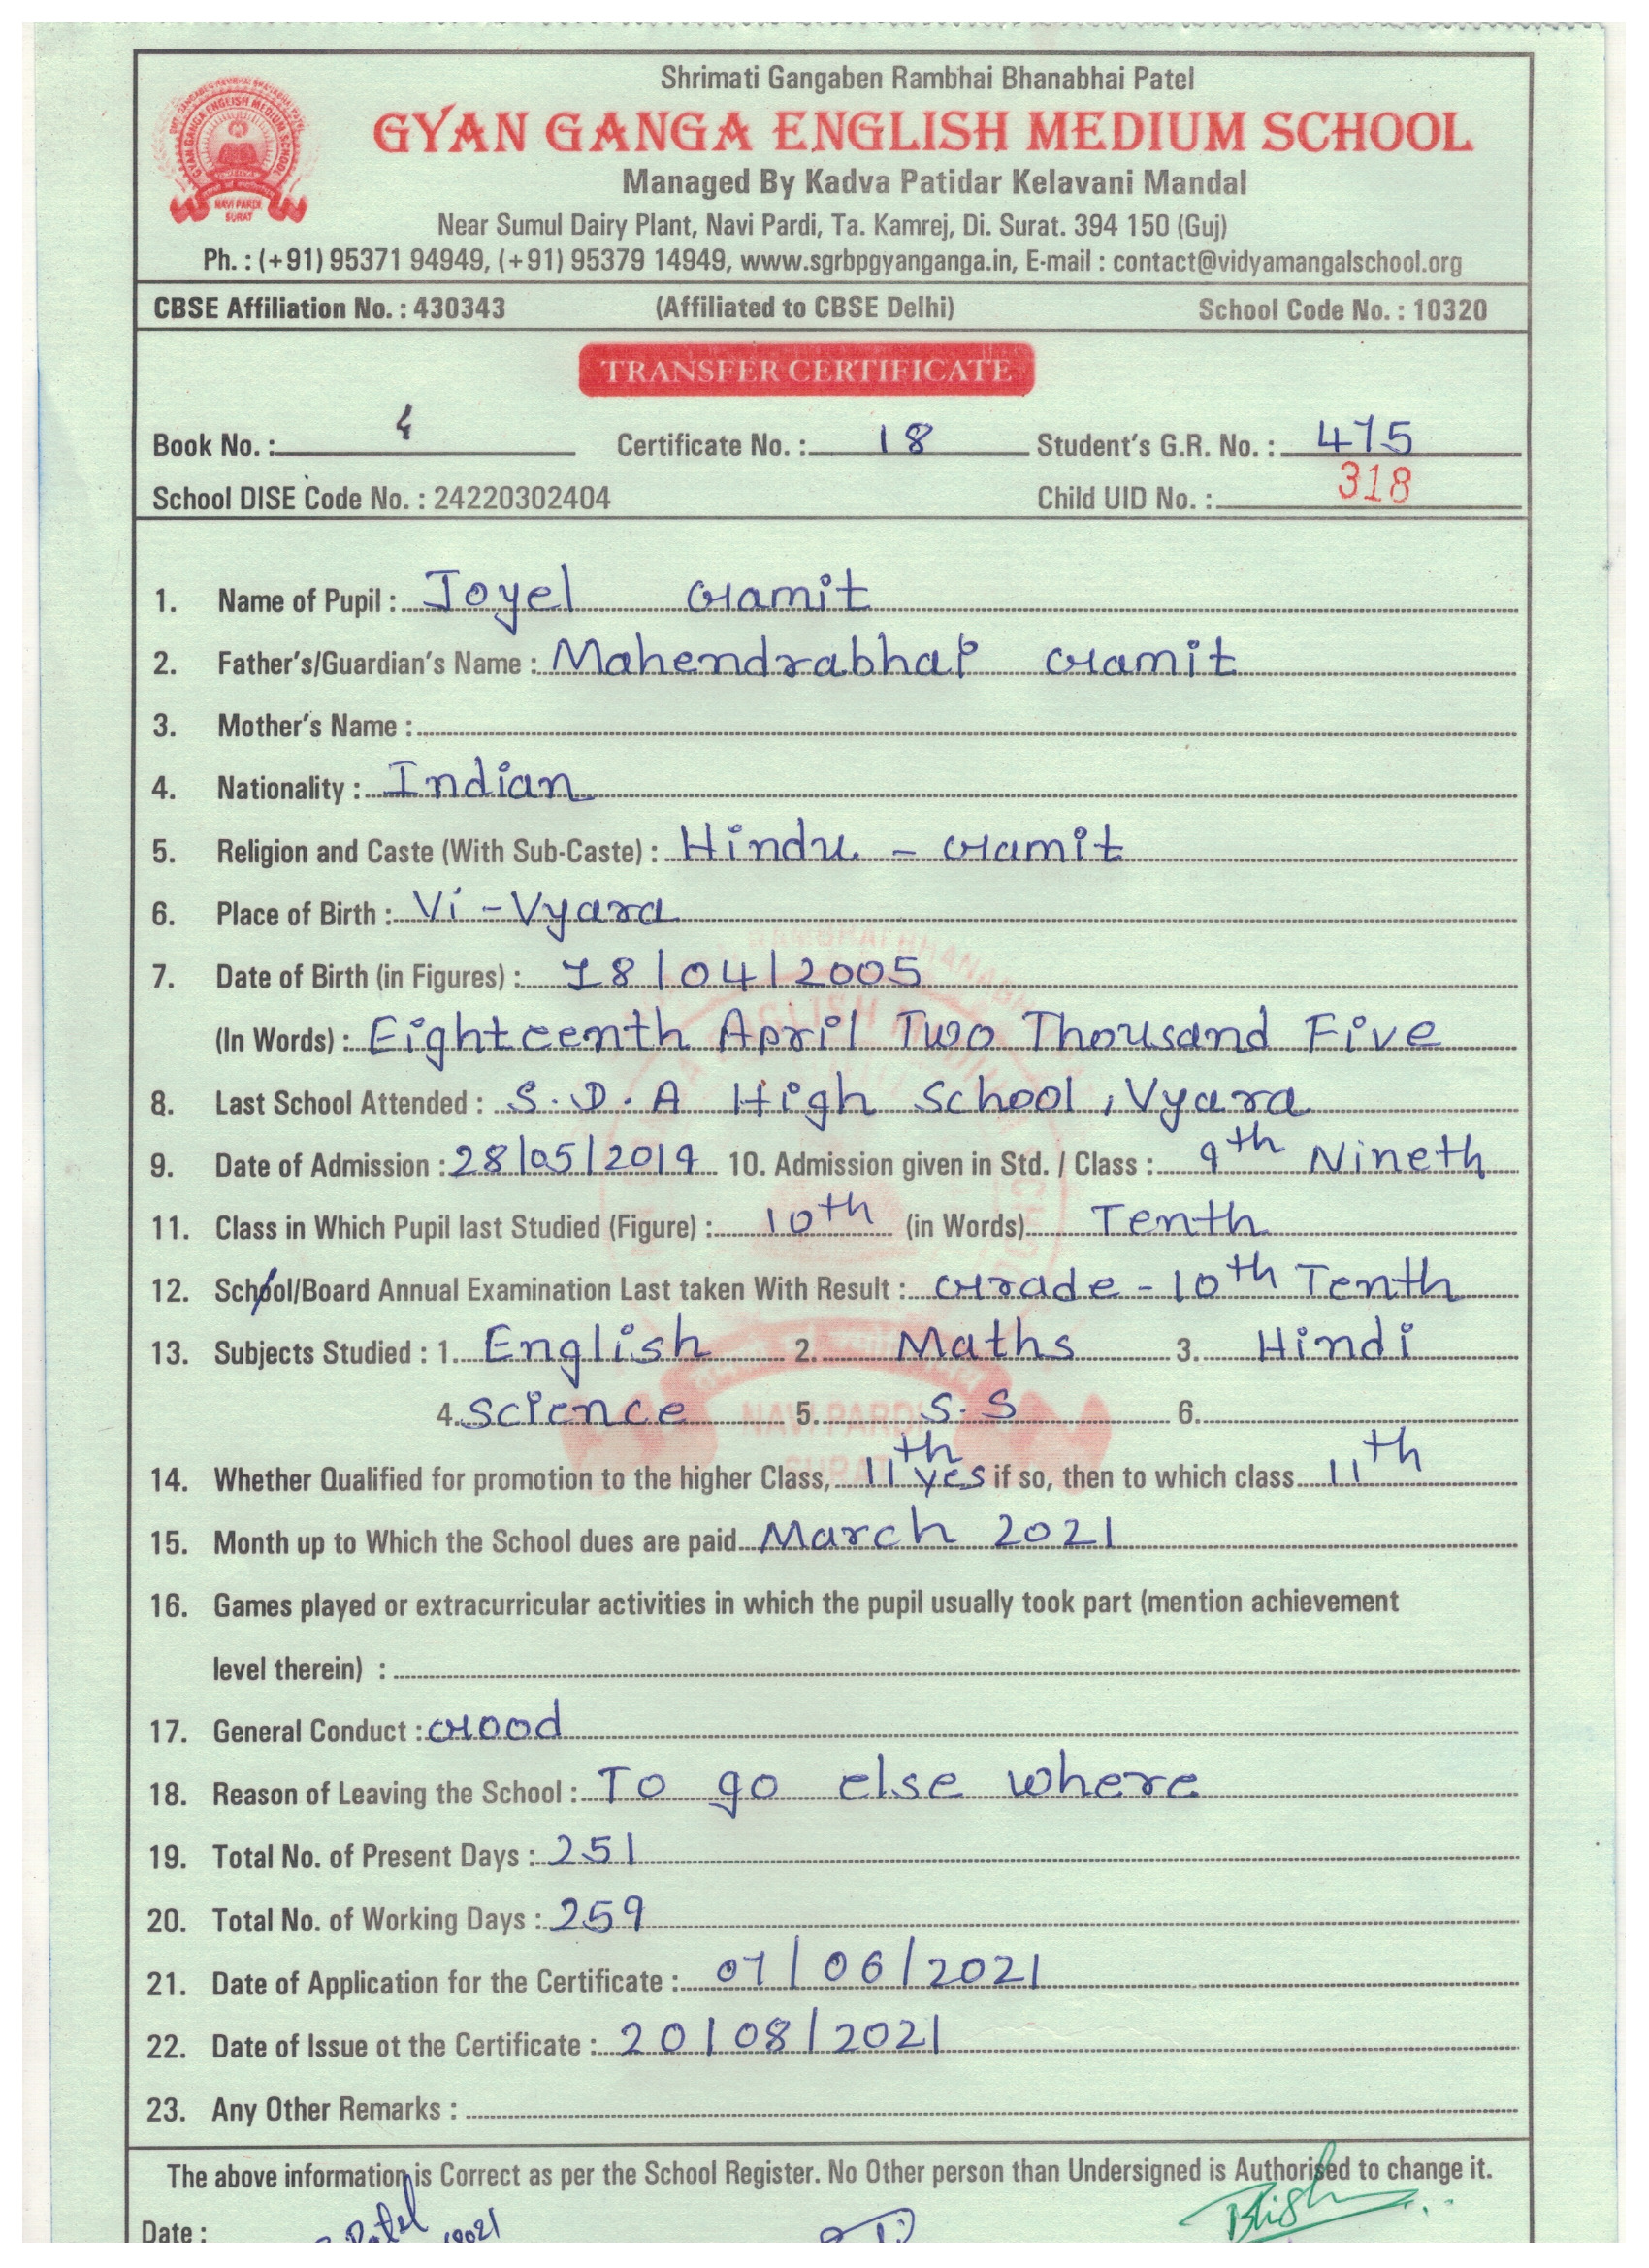 Shrimati Gangaben Rambhai Bhanabhai Patel
GYAN GANGA ENGLISH MEDIUM SCHOOL
Managed By Kadva Patidar Kelavani Mandal
Near Sumul Dairy Plant, Navi Pardi, Ta. Kamrej, Di. Surat. 394 150 (Guj)
Ph. : (+91) 95371 94949, (+91) 95379 14949, www.sgrbpgyanganga.in, E-mail : contact@vidyamangalschool.org
CBSE Affiliation No. : 430343 (Affiliated to CBSE Delhi) School Code No. : 10320
TRANSFER CERTIFICATE
Book No. : 4 Certificate No. : 18 Student's G.R. No. : 475
School DISE Code No. : 24220302404 Child UID No. : 318
1. Name of Pupil : Joyel Gamit
2. Father's/Guardian's Name : Mahendrabhai Gamit
3. Mother's Name :
4. Nationality : Indian
5. Religion and Caste (With Sub-Caste) : Hindu - Gamit
6. Place of Birth : Vi - Vyara
7. Date of Birth (in Figures) : 18/04/2005
(In Words) : Eighteenth April Two Thousand Five
8. Last School Attended : S.D.A High School, Vyara
9. Date of Admission : 28/05/2019 10. Admission given in Std. / Class : 9th Nineth
11. Class in Which Pupil last Studied (Figure) : 10th (in Words) Tenth
12. School/Board Annual Examination Last taken With Result : Grade - 10th Tenth
13. Subjects Studied : 1. English 2. Maths 3. Hindi
4. Science 5. S.S 6.
14. Whether Qualified for promotion to the higher Class, 11th yes if so, then to which class 11th
15. Month up to Which the School dues are paid March 2021
16. Games played or extracurricular activities in which the pupil usually took part (mention achievement
level therein) :
17. General Conduct : Good
18. Reason of Leaving the School : To go else where
19. Total No. of Present Days : 251
20. Total No. of Working Days : 259
21. Date of Application for the Certificate : 07/06/2021
22. Date of Issue ot the Certificate : 20/08/2021
23. Any Other Remarks :
The above information is Correct as per the School Register. No Other person than Undersigned is Authorised to change it.
Date :